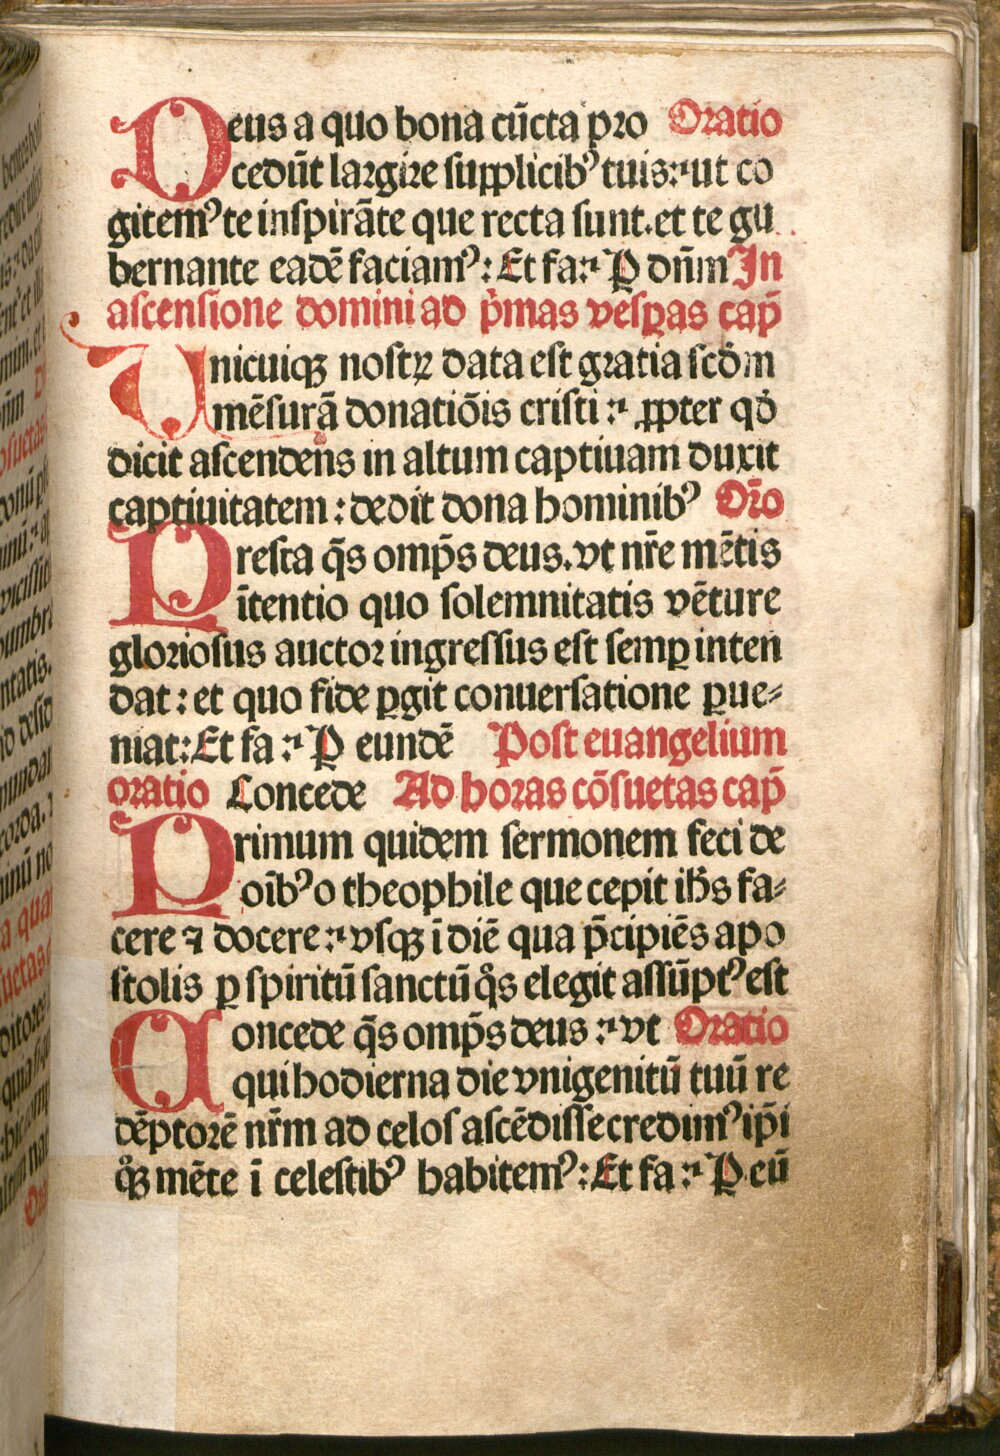 Deus a quo bona cūcta pro Oratio
cedūt largire supplicibꝰ tuis: ut co
gitemꝰ te inspirāte que recta sunt. et te gu
bernante eadē faciamꝰ: Et fa: P dn̄m In
ascensione domini ad pͥmas vesꝑas cap̄
Unicuiqꝫ nostꝝ data est gratia scd̄m
mēsurā donatiōis cristi: ꝓpter qd̄
dicit ascendens in altum captiuam duxit
captiuitatem: dedit dona hominibꝰ Or̄o
Presta q̄s omp̄s deus. vt nr̄e mētis
ītentio quo solemnitatis vēture
gloriosus auctor ingressus est semꝑ inten
dat: et quo fide ꝑgit conuersatione ꝑue⸗
niat: Et fa: P eundē Post euangelium
oratio Concede Ad horas cōsuetas cap̄
Primum quidem sermonem feci de
oībꝰ o theophile que cepit ih̄s fa⸗
cere ⁊ docere: vsqꝫ ī diē qua p̄cipiēs apo
stolis ꝑ spiritū sanctū qͦs elegit assūptꝰ est
Concede q̄s omp̄s deus: vt Oratio
qui hodierna die vnigenitū tuū re
dēptorē nr̄m ad celos ascēdisse credimꝰ ip̄i
qͦqꝫ mēte ī celestibꝰ habitemꝰ: Et fa: P eū